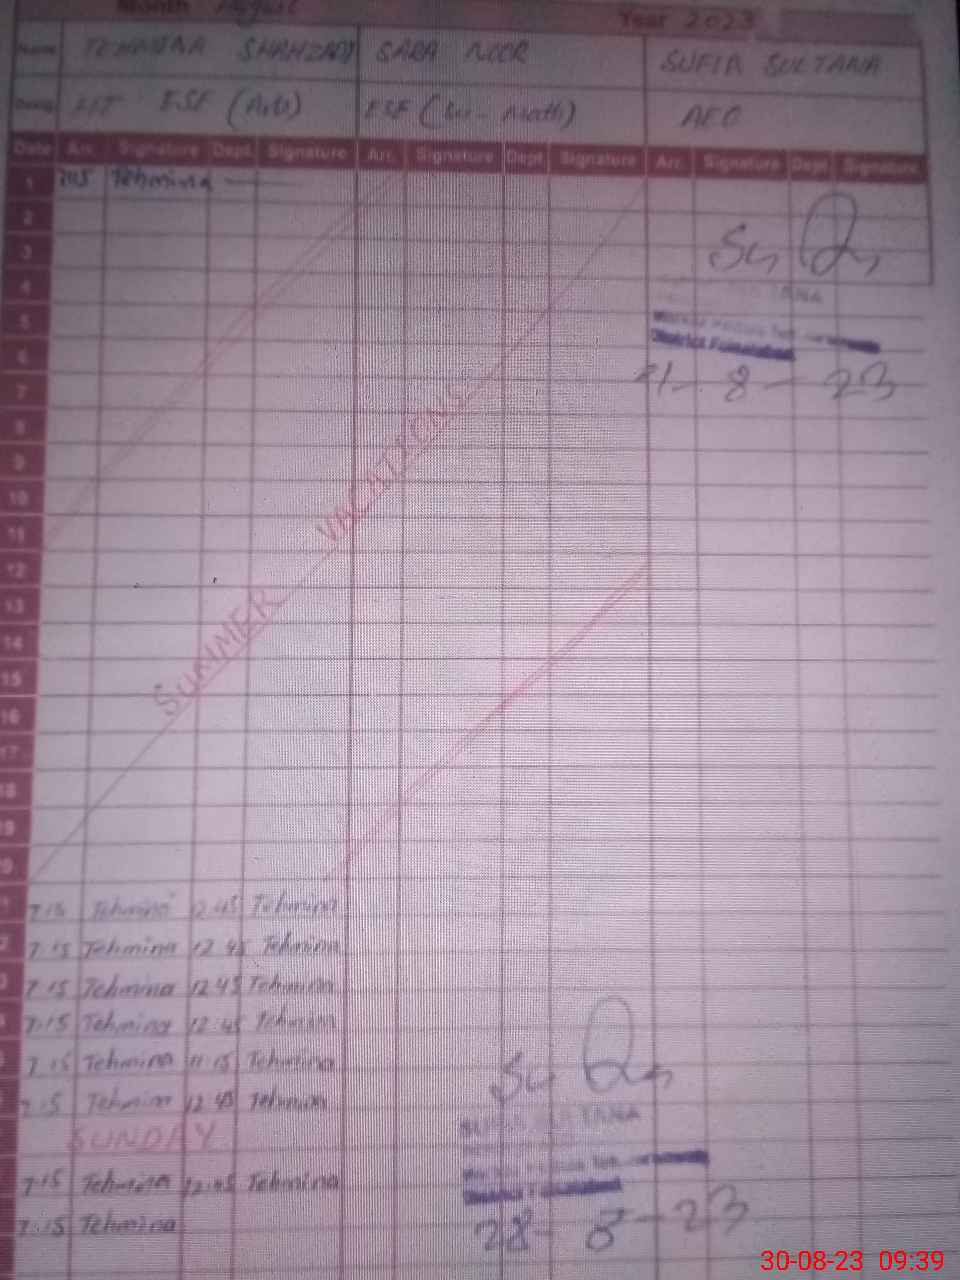 Month August Year 2023
Name TEHMINA SHAHZADI SABA NOOR SUFIA SULTANA
Desig EST ESE (Arts) ESE (Sci-Math) AEO
Date Arr. Signature Dept. Signature Arr. Signature Dept. Signature Arr. Signature Dept. Signature
1 7.15 Tehmina
2
3
4
5
District Faisalabad
6
21-8-23
7
8
9
10
11
12
13
14
15
16
17
18
19
20
SUMMER VACATIONS
7.15 Tehmina 12.45 Tehmina
7.15 Tehmina 12.45 Tehmina
7.15 Tehmina 12.45 Tehmina
7.15 Tehmina 12.45 Tehmina
7.15 Tehmina 11.15 Tehmina
7.15 Tehmina 12.45 Tehmina
SUNDAY
SUFIA SULTANA
7.15 Tehmina 12.45 Tehmina
District Faisalabad
7.15 Tehmina
28-8-23
30-08-23 09:39